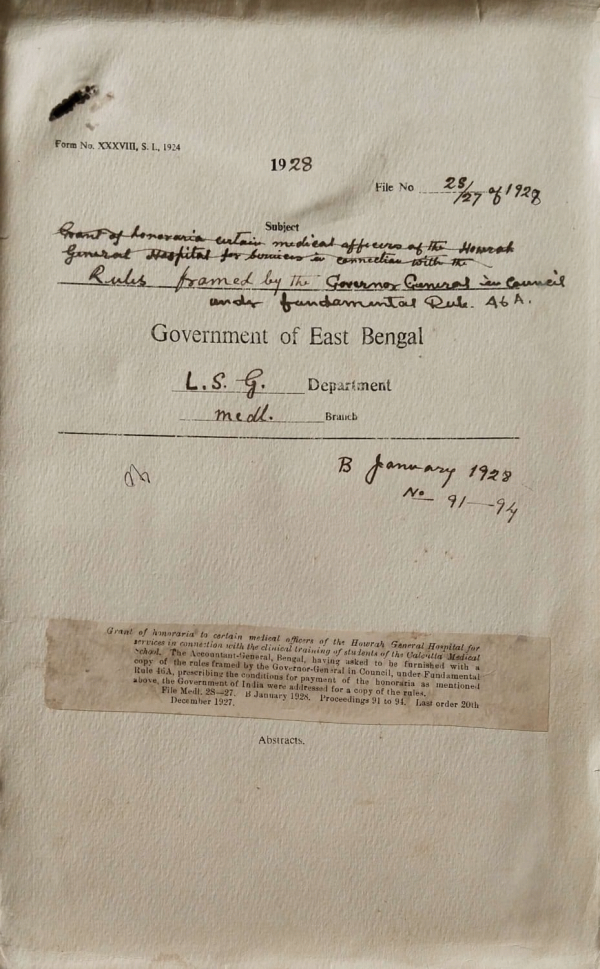 Form No. XXXVIII, S. I., 1924
1928
File No 28/27 of 1927
Subject
Grant of honoraria certain medical officers of the Howrah
General Hospital for services in connection with the
Rules framed by the Governor General in Council
under fundamental Rule. 46 A.
Government of East Bengal
L. S. G. Department
medl. Branch
B January 1928
No 91—94
Grant of honoraria to certain medical officers of the Howrah General Hospital for
services in connection with the clinical training of students of the Calcutta Medical
School. The Accountant-General, Bengal, having asked to be furnished with a
copy of the rules framed by the Governor-General in Council, under Fundamental
Rule 46A, prescribing the conditions for payment of the honoraria as mentioned
above, the Government of India were addressed for a copy of the rules.
File Medl. 28—27. B January 1928. Proceedings 91 to 94. Last order 20th
December 1927.
Abstracts.